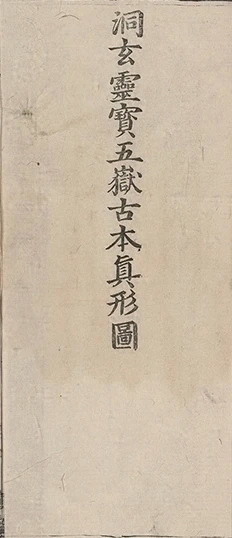 洞玄靈寶五嶽古本真形圖